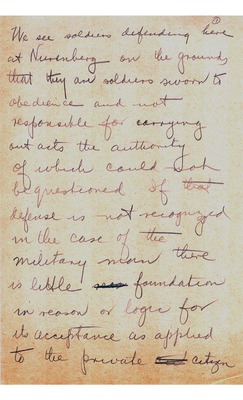 ①
We see soldiers defending here
at Nurenberg on the grounds
that they are soldiers sworn to
obedience and not
responsible for carrying
out acts the authority
of which could not
be questioned If that
defense is not recognized
in the case of the
military man there
is little foundation
in reason or logic for
its acceptance as applied
to the private citizen